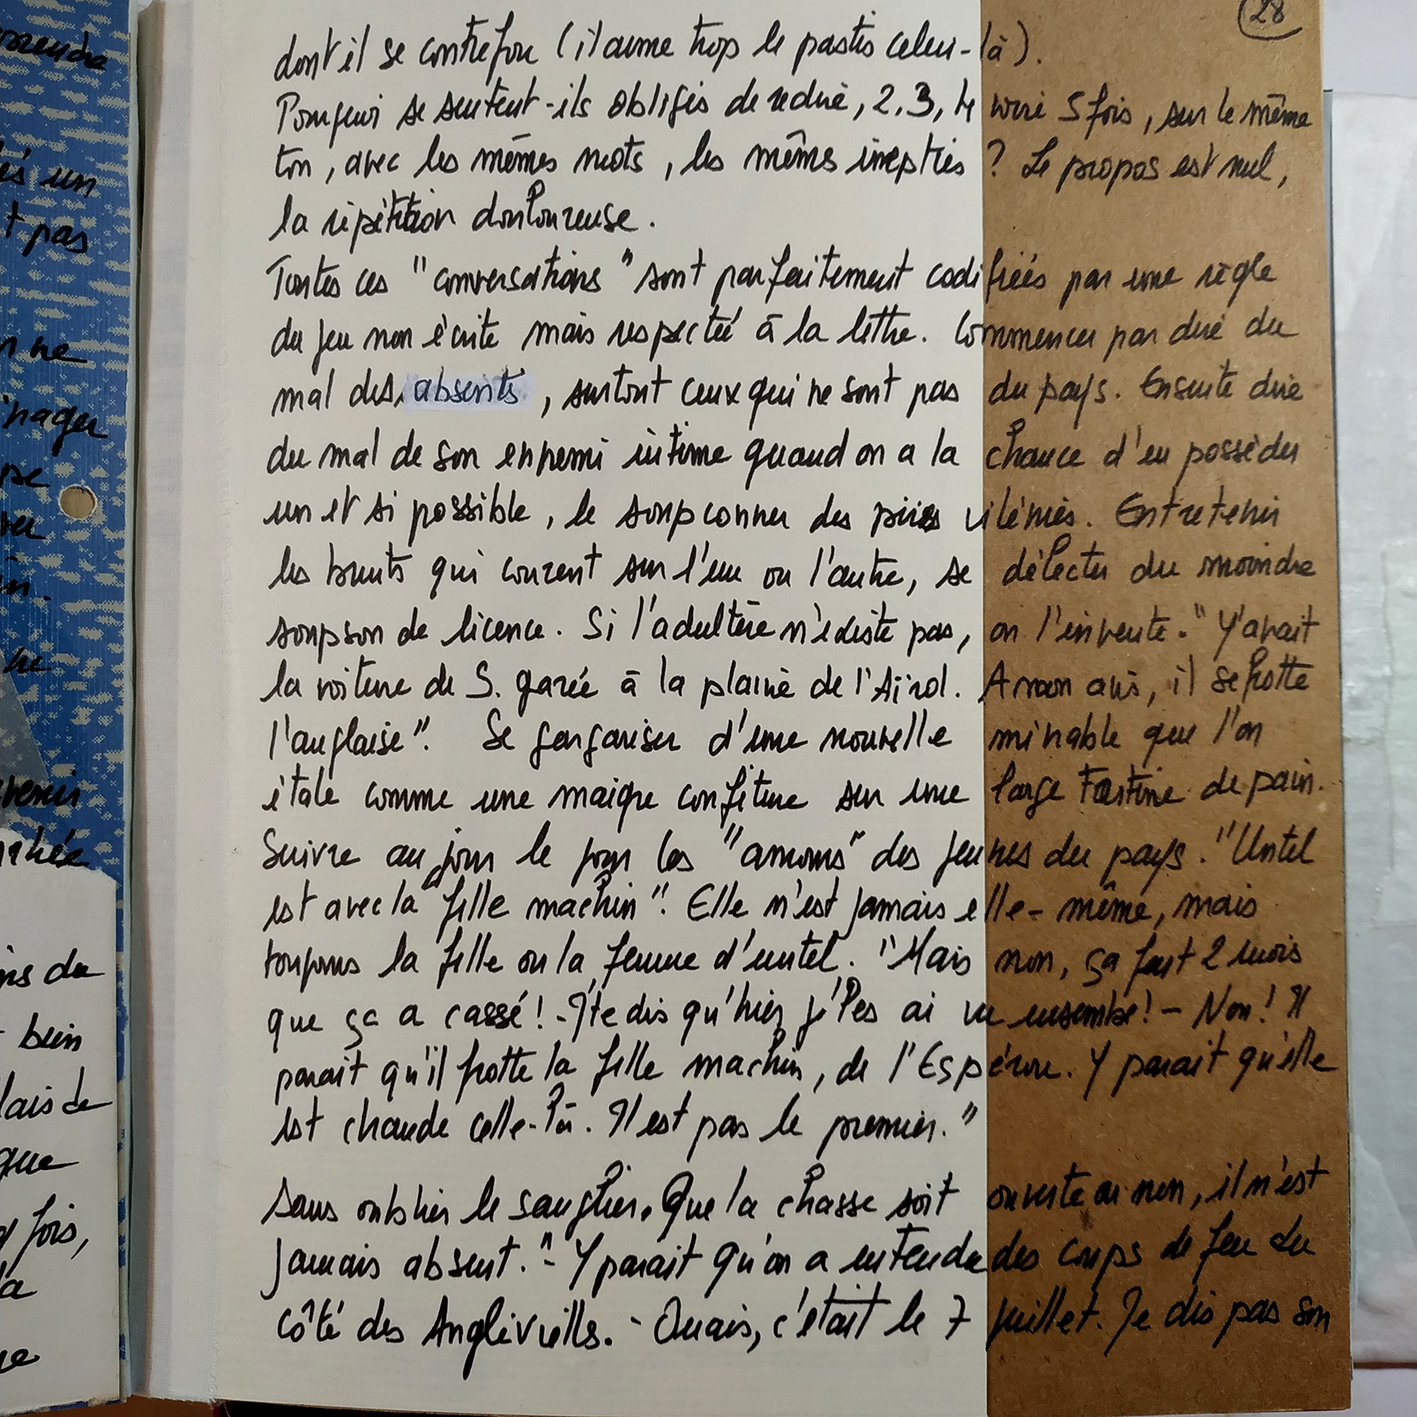 28
dont il se contrefou (il aime trop le pastis celui-là).
Pourquoi se sentent-ils obligés de redire, 2, 3, 4 voire 5 fois, sur le même
ton, avec les mêmes mots, les mêmes inepties ? Le propos est nul,
la répétition douloureuse.
Toutes ces "conversations" sont parfaitement codifiées par une règle
du jeu non écrite mais respectée à la lettre. Commencer par dire du
mal des absents, surtout ceux qui ne sont pas du pays. Ensuite dire
du mal de son ennemi intime quand on a la chance d'en posséder
un et si possible, le soupconner des pires vilénies. Entretenir
les bruits qui courent sur l'une ou l'autre, se délecter du moindre
soupson de licence. Si l'adultère n'éxiste pas, on l'invente. "Y'avait
la voiture de S. garée à la plaine de l'Aïrol. A mon avis, il se frotte
l'anglaise". Se gargariser d'une nouvelle minable que l'on
étale comme une maigre confiture sur une large tartine de pain.
Suivre au jour le jour les "amours" des jeunes du pays. "Untel
est avec la fille machin". Elle n'est jamais elle-même, mais
toujours la fille ou la femme d'untel. "Mais non, ça fait 2 mois
que ça a cassé! - J'te dis qu'hier j'les ai vu ensembe! - Non! Il
parait qu'il frotte la fille machin, de l'Espérou. Y parait qu'elle
est chaude celle-là. Il est pas le premier."
Sans oublier le sanglier. Que la chasse soit ouverte ou non, il n'est
jamais absent. "- Y parait qu'on a entendu des coups de feu du
côté des Anglivielles. - Ouais, c'était le 7 juillet. Je dis pas son